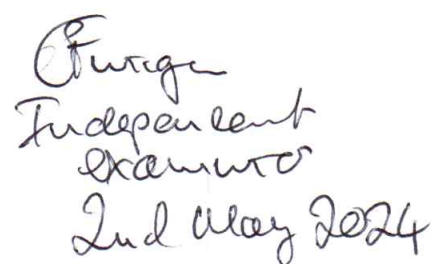 Independent
examiner
2nd May 2024